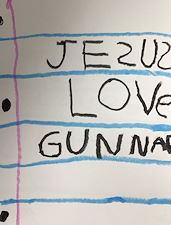 JESUS
LOVE
GUNNAR